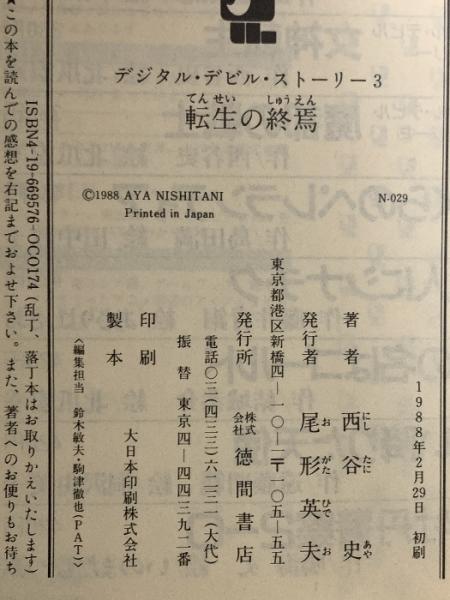 デジタル・デビル・ストーリー3
てんせい しゅうえん
転生の終焉
©1988 AYA NISHITANI
Printed in Japan
N-029
1988年2月29日 初刷
著者 西谷 史
にし たに あや
発行者 尾形英夫
お がた ひで お
東京都港区新橋四―一〇―一〒一〇五―五五
発行所 株式会社 徳間書店
電話〇三(四三三)六二三一(大代)
振替 東京四―四四三九二番
印刷
製本
大日本印刷株式会社
〈編集担当 鈴木敏夫・駒津徹也(PAT)〉
ISBN4-19-669576-OCO174(乱丁、落丁本はお取りかえいたします)
★この本を読んでの感想を右記までおよせ下さい。また、著者へのお便りもお待ち